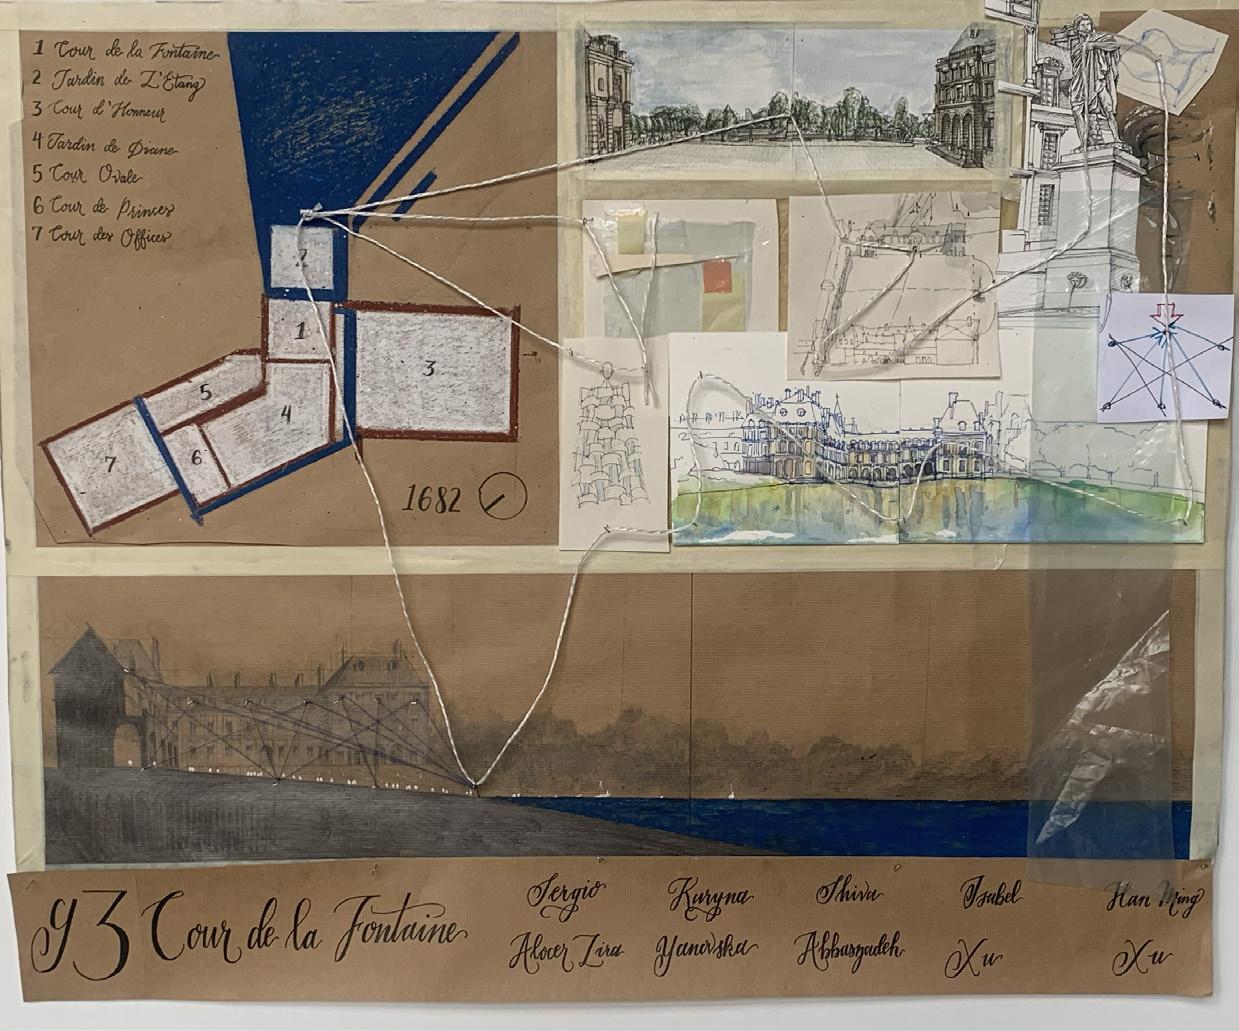 1 Cour de la Fontaine
2 Jardin de L'Etang
3 Cour d'Honneur
4 Jardin de Diane
5 Cour Ovale
6 Cour de Princes
7 Cour des Offices
2
1
3
5
4
6
7
1682
g3 Cour de la Fontaine
Sergio Kuryna Shiva Isabel Han Ming
Alocer Zira Yanovska Abbaszadeh Xu Xu